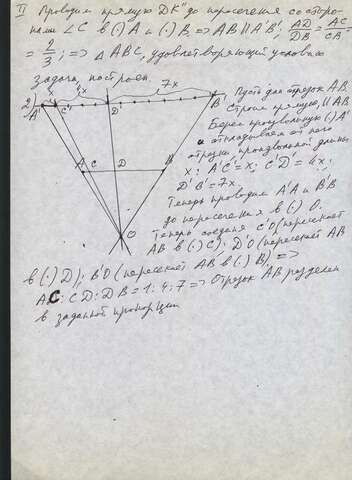 II Проводим прямую DK" до пересечения со сторо-
нами ∠C в (·) A и (·) B, => AB || A'B'; AD/DB = AC/CB =
= 2/3; => △ABC, удовлетворяющий условию
задачи, построен.
2) x 4x 7x
A' C' D' B'
Пусть дан отрезок AB.
Строим прямую, || AB
Берем произвольную (·) A'
и откладываем от него
отрезки произвольной длины
x: A'C' = x; C'D' = 4x;
D'B' = 7x.
A C D B
Теперь проводим A'A и B'B
до пересечения в (·) O.
O
Теперь соединя C'O (пересекает
AB в (·) C); D'O (пересекает AB
в (·) D); B'O (пересекает AB в (·) B) =>
AC : CD : DB = 1 : 4 : 7 => Отрезок AB разделен
в заданной пропорции